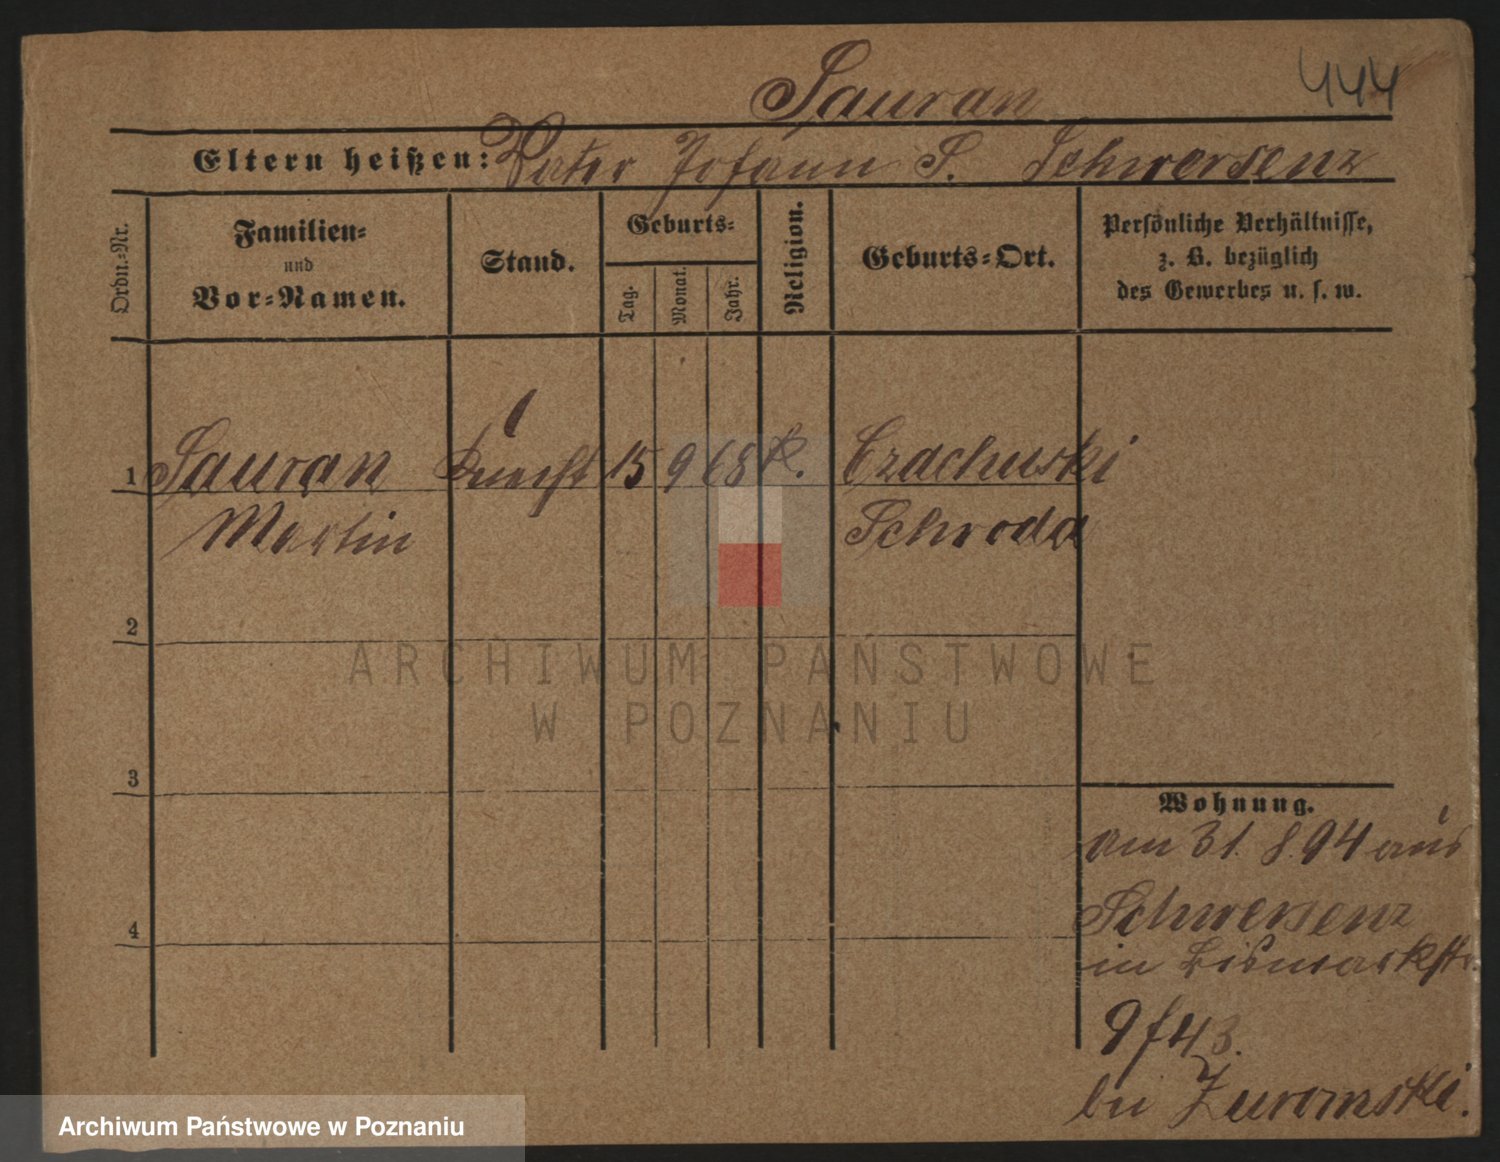 Sauran
444
Eltern heißen: Vater Johann S. Schwersenz
Ordn.-Nr.
Familien-
und
Vor-Namen.
Stand.
Geburts-
Tag.
Monat.
Jahr.
Religion.
Geburts-Ort.
Persönliche Verhältnisse,
z. B. bezüglich
des Gewerbes u. s. w.
1 Sauran Knecht 15 9 68 K. Czachurski
Martin Schroda
2
3
4
Wohnung.
Am 31. 8. 94 aus
Schwersenz
in Bismarkstr.
9 f 43.
bei Zuromski.
ARCHIWUM PAŃSTWOWE
W POZNANIU
Archiwum Państwowe w Poznaniu